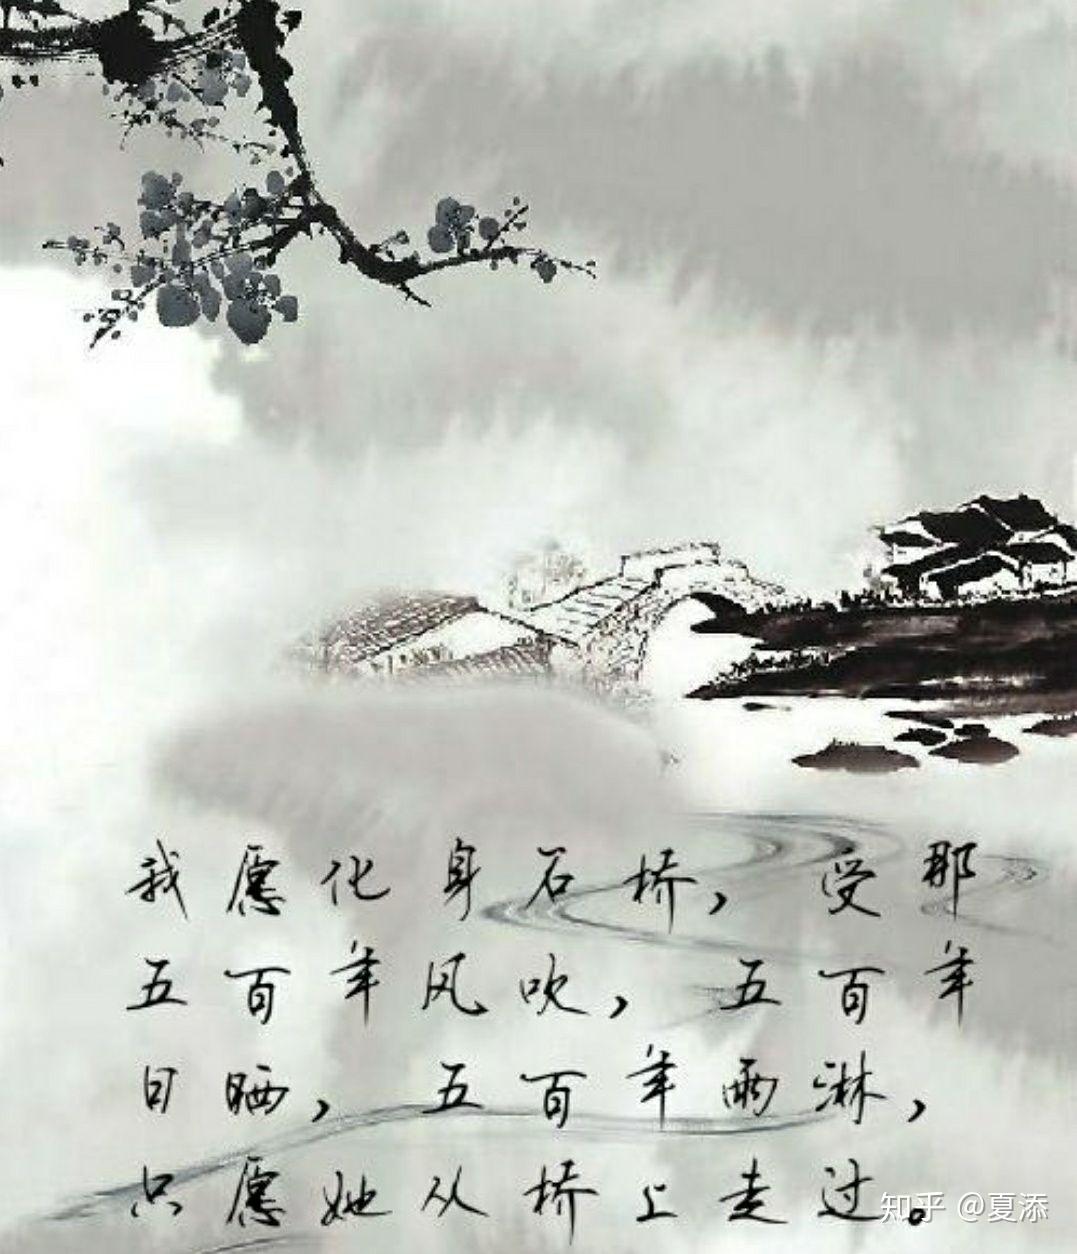 我愿化身石桥，受那
五百年风吹，五百年
日晒，五百年雨淋，
只愿她从桥上走过。
知乎 @夏添